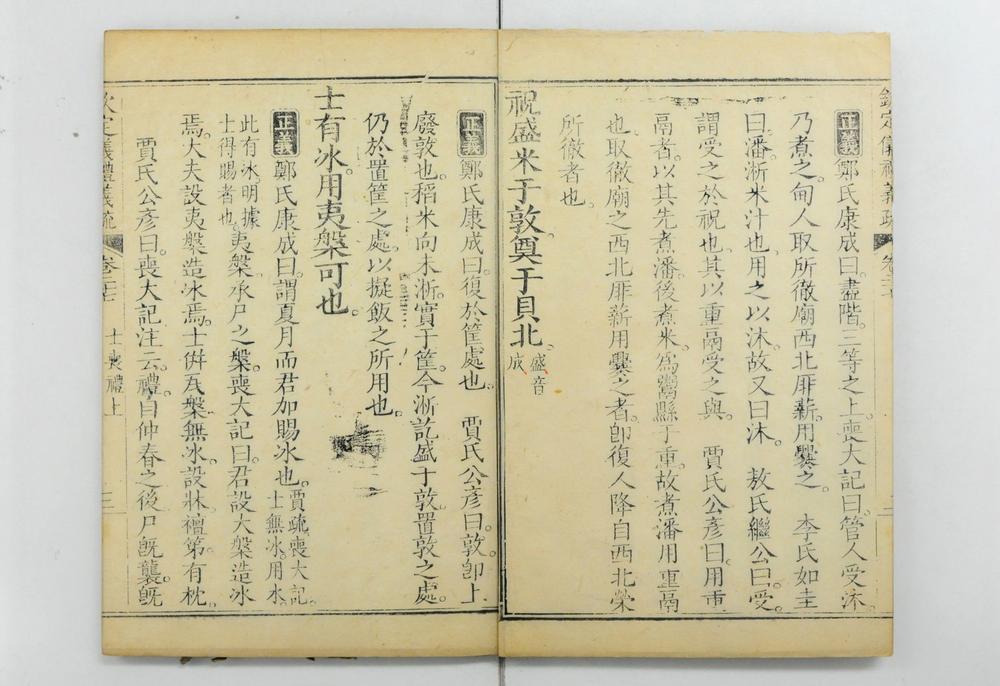 欽定儀禮義疏 卷二十七
正義 鄭氏康成曰。盡階。三等之上。喪大記曰。管人受沐
乃煮之。甸人取所徹廟西北厞薪。用爨之。 李氏如圭
曰。潘。淅米汁也。用之以沐。故又曰沐。 敖氏繼公曰。受。
謂受之於祝也。其以重鬲受之與。 賈氏公彥曰。用重
鬲者。以其先煮潘。後煮米。爲鬻縣于重。故煮潘用重鬲
也。取徹廟之西北厞薪用爨之者。卽復人降自西北榮
所徹者也。
祝盛米于敦奠于貝北。盛音成
正義 鄭氏康成曰。復於筐處也。 賈氏公彥曰。敦。卽上
廢敦也。稻米向未淅。實于筐。今淅訖。盛于敦。置敦之處。
仍於置筐之處。以擬飯之所用也。
士有冰用夷槃可也。
正義 鄭氏康成曰。謂夏月而君加賜冰也。賈疏。喪大記。士無冰。用水。
此有冰。明據士得賜者也。夷槃。承尸之槃。喪大記曰。君設大槃造冰
焉。大夫設夷槃造冰焉。士倂瓦槃無冰。設牀襢笫。有枕。
賈氏公彥曰。喪大記注云。禮。自仲春之後。尸旣襲。旣
欽定儀禮義疏 卷二十七 士喪禮上 三